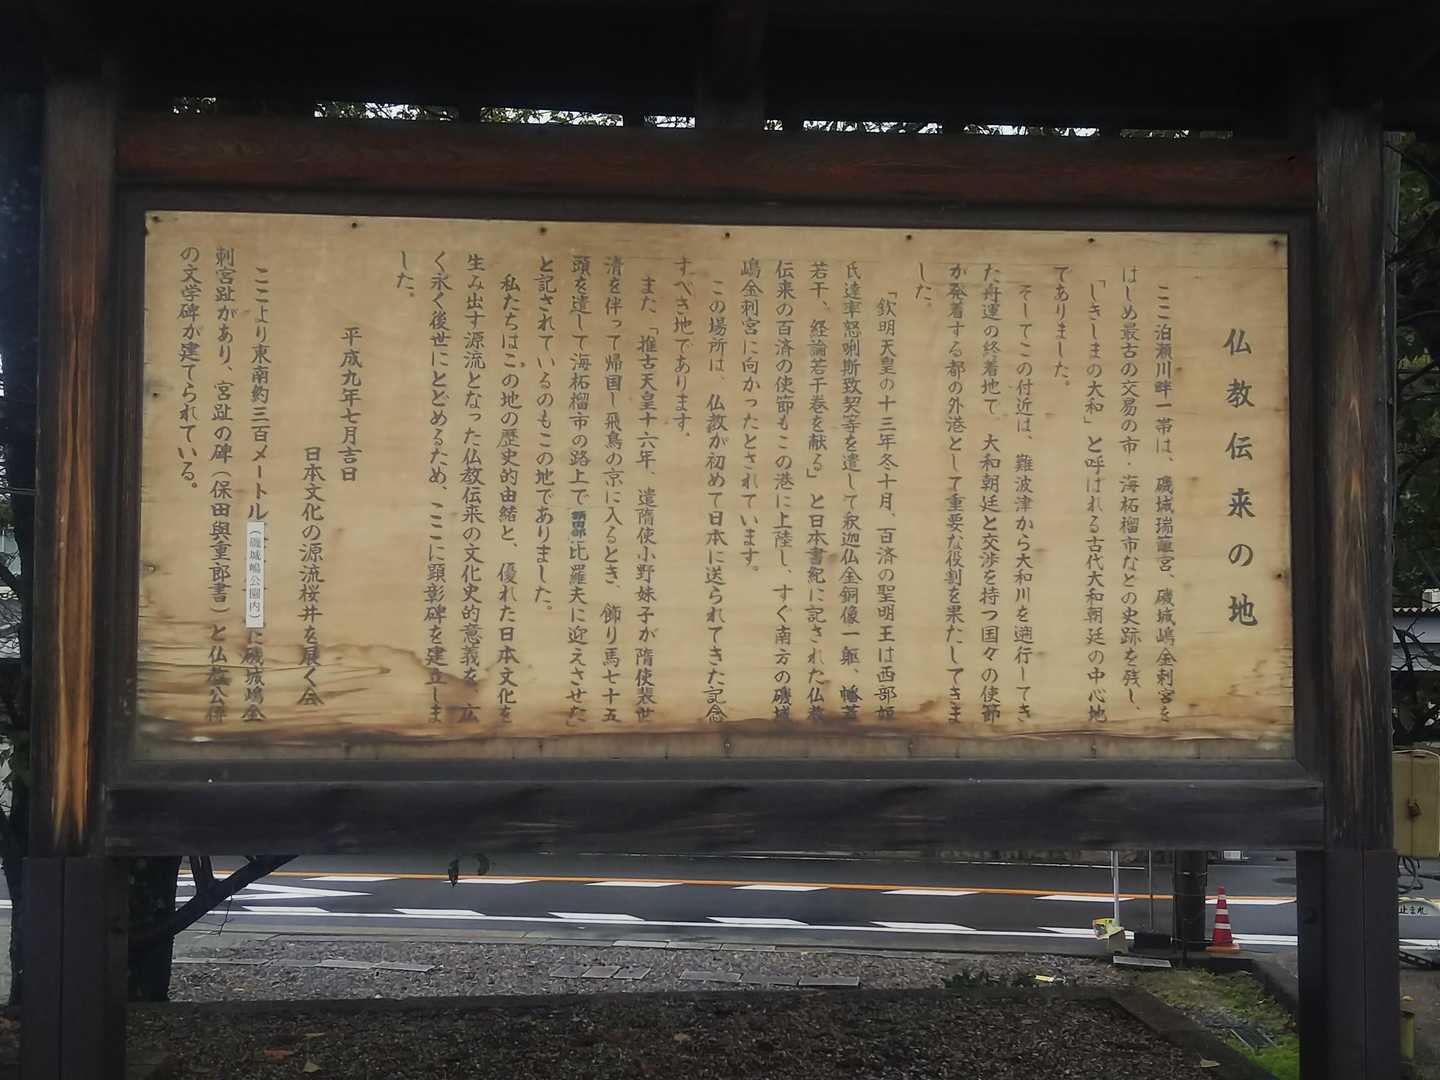 仏教伝来の地
ここ泊瀬川畔一帯は、磯城瑞籬宮、磯城嶋金刺宮を
はじめ最古の交易の市・海柘榴市などの史跡を残し、
「しきしまの大和」と呼ばれる古代大和朝廷の中心地
でありました。
そしてこの付近は、難波津から大和川を遡行してき
た舟運の終着地で、大和朝廷と交渉を持つ国々の使節
が発着する都の外港として重要な役割を果たしてきま
した。
「欽明天皇の十三年冬十月、百済の聖明王は西部姫
氏達率怒唎斯致契等を遣して釈迦仏金銅像一軀、幡蓋
若干、経論若干巻を献る」と日本書紀に記された仏教
伝来の百済の使節もこの港に上陸し、すぐ南方の磯城
嶋金刺宮に向かったとされています。
この場所は、仏教が初めて日本に送られてきた記念
すべき地であります。
また「推古天皇十六年、遣隋使小野妹子が隋使裴世
清を伴って帰国し飛鳥の京に入るとき、飾り馬七十五
頭を遣して海柘榴市の路上で額田部比羅夫に迎えさせた
と記されているのもこの地でありました。
私たちはこの地の歴史的由緒と、優れた日本文化を
生み出す源流となった仏教伝来の文化史的意義を、広
く永く後世にとどめるため、ここに顕彰碑を建立しま
した。
平成九年七月吉日
日本文化の源流桜井を展く会
ここより東南約三百メートル(磯城嶋公園内)に磯城嶋金
刺宮趾があり、宮趾の碑(保田與重郎書)と仏教公伝
の文学碑が建てられている。
止まれ